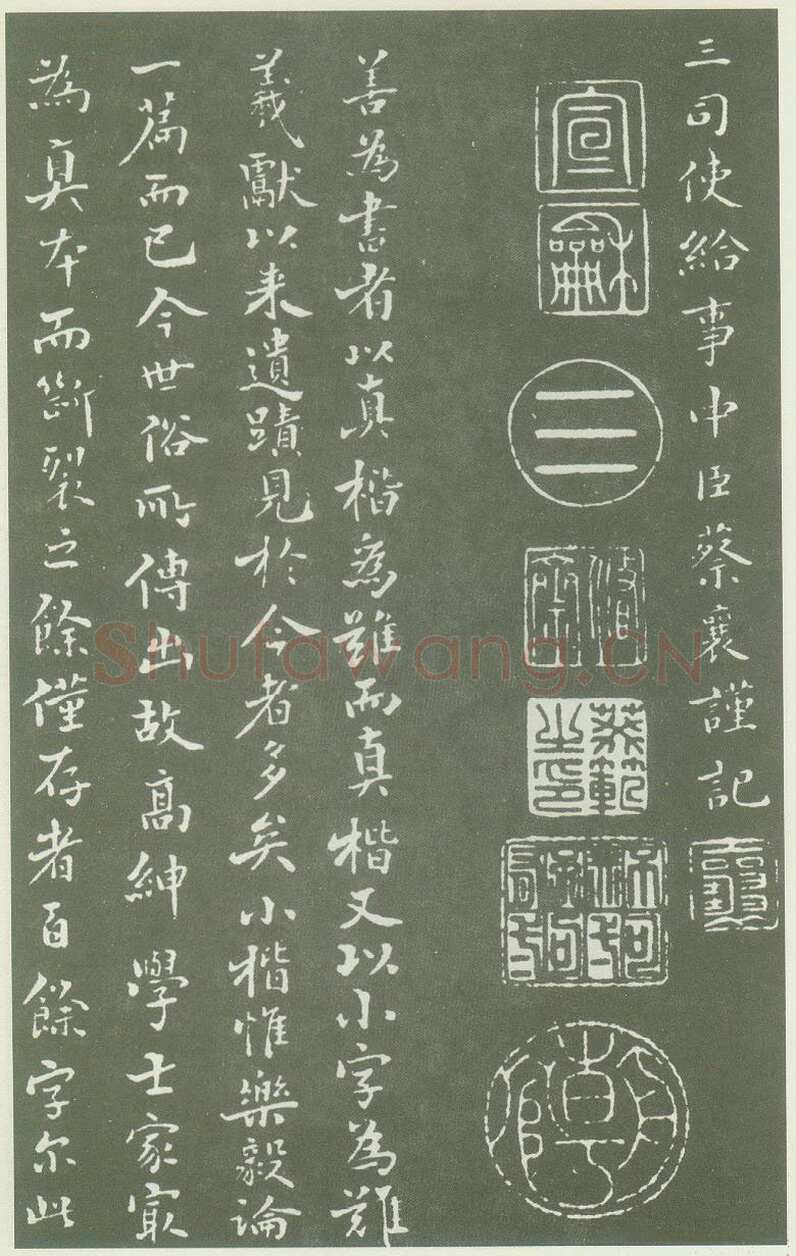 三司使給事中臣蔡襄謹記
宣
龢
三
蔡範
之印
善為書者以真楷為難而真楷又以小字為難
羲獻以来遺蹟見於今者多矣小楷惟樂毅論
一篇而已今世俗所傳出故高紳學士家寂
為真本而斷裂之餘僅存者百餘字尔此
Shufawang.CN